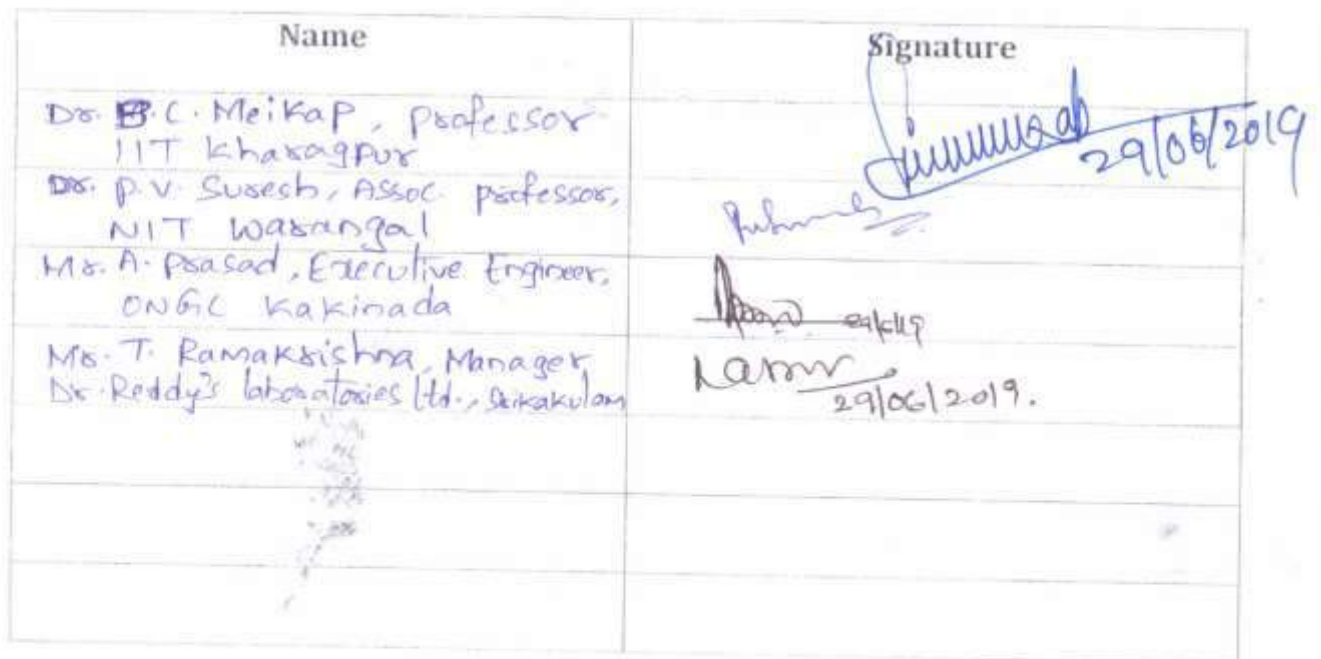 Name
Signature
Dr. B.C. Meikap, professor
IIT Kharagpur
29/06/2019
Dr. P.V. Suresh, Assoc. professor,
NIT Warangal
Mr. A. Prasad, Executive Engineer,
ONGC Kakinada
Mr. T. Ramakrishna, Manager
Dr. Reddy's laboratories ltd., Srikakulam
29/06/2019.